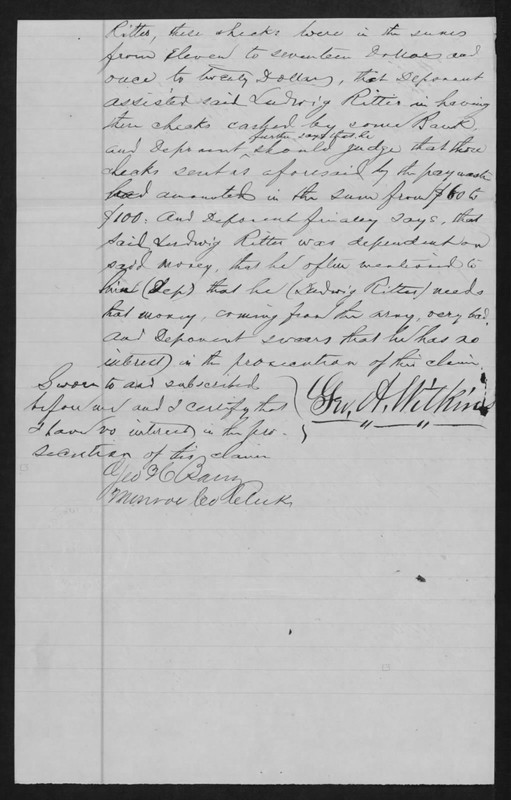 Ritter, these checks were in the sums
from Eleven to seventeen Dollars and
once to twenty Dollars, that Deponent
assisted said Ludwig Ritter in having
them checks cashed by some Bank,
further says that he
and Deponent should judge that those
cheaks sent as aforesaid by the paymaster
had amounted in the sum from $60 to
$100: And Deponent finaley says, that
said Ludwig Ritter was dependent on
said money, that he often mentioned to
him (Dep) that he (Ludwig Ritter) needs
that money, coming from the army, very bad.
And Deponent swears that he has no
interest in the prosecution of this claim,
Geo. A. Wilkins
Sworn to and subscribed
before me and I certify that
I have no interest in the pro-
secution of this claim
Monroe Co Clerk